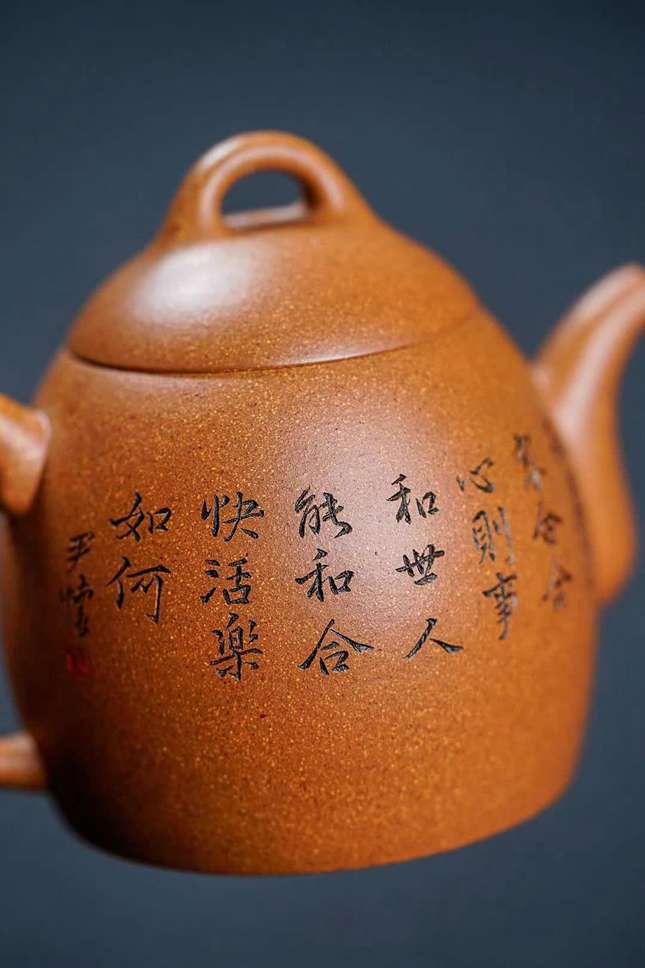 合合
心則事
和世人
能和合
快活樂
如何